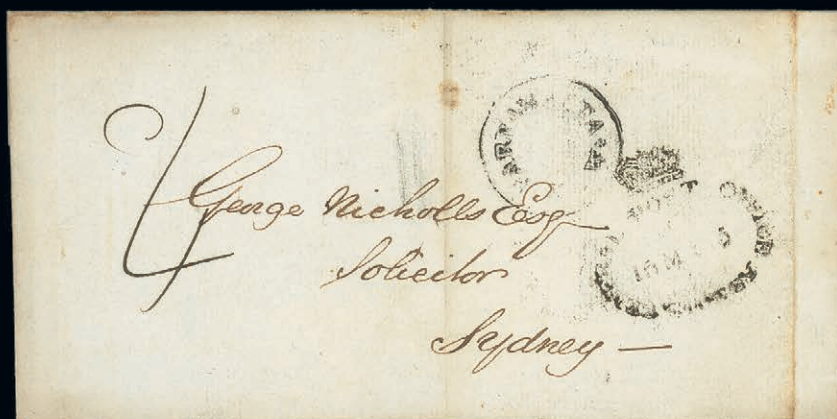 4
George Nicholls Esq
Solicitor
Sydney —
PARRAMATTA
POST OFFICE